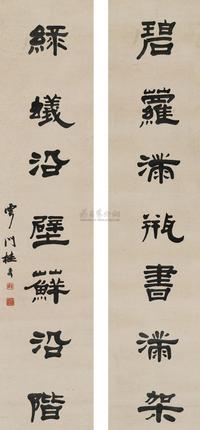 碧蘿滿瓶書滿架
綠蟻沿壁蘚沿階
雩門桂馥